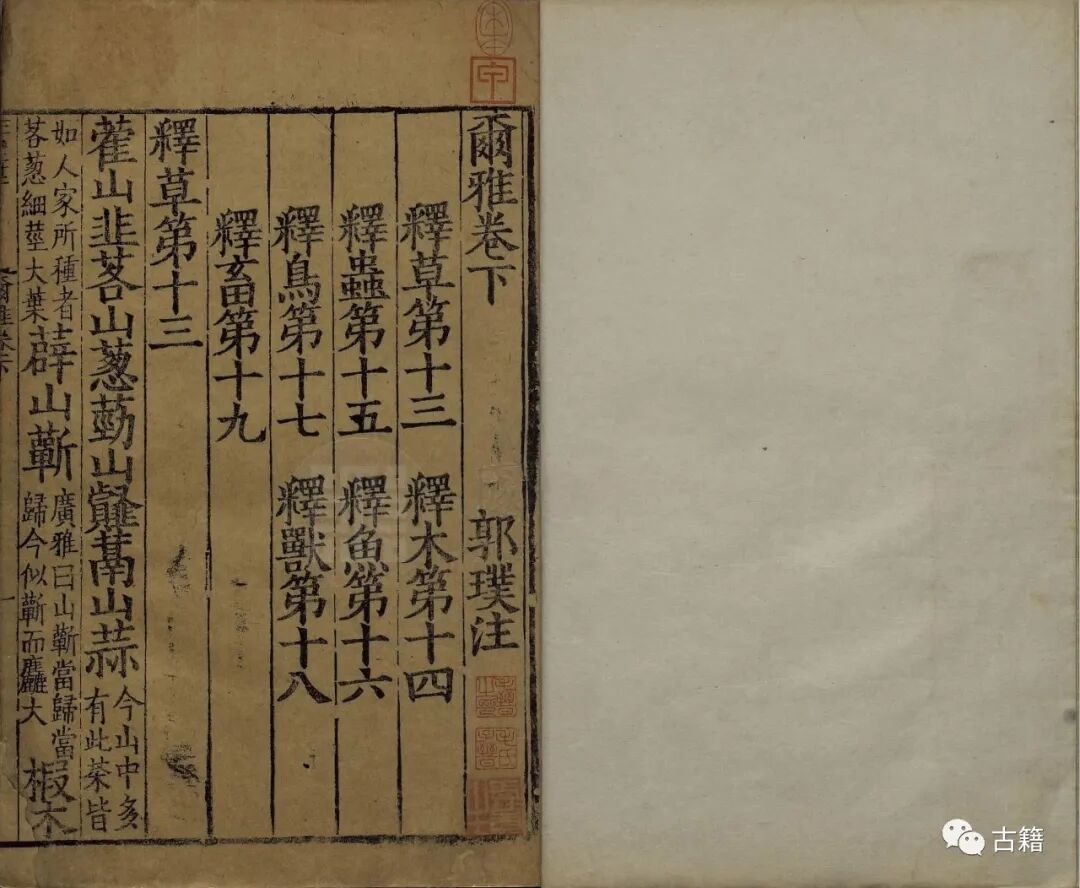 爾雅卷下 郭璞注
釋草第十三 釋木第十四
釋蟲第十五 釋魚第十六
釋鳥第十七 釋獸第十八
釋畜第十九
釋草第十三
蒮山韭茖山葱葝山䪥蒚山蒜今山中多有此菜皆
如人家所種者茖葱細莖大葉薜山蘄廣雅曰山蘄當歸當歸今似蘄而麤大椴木
宋本
甲
古籍